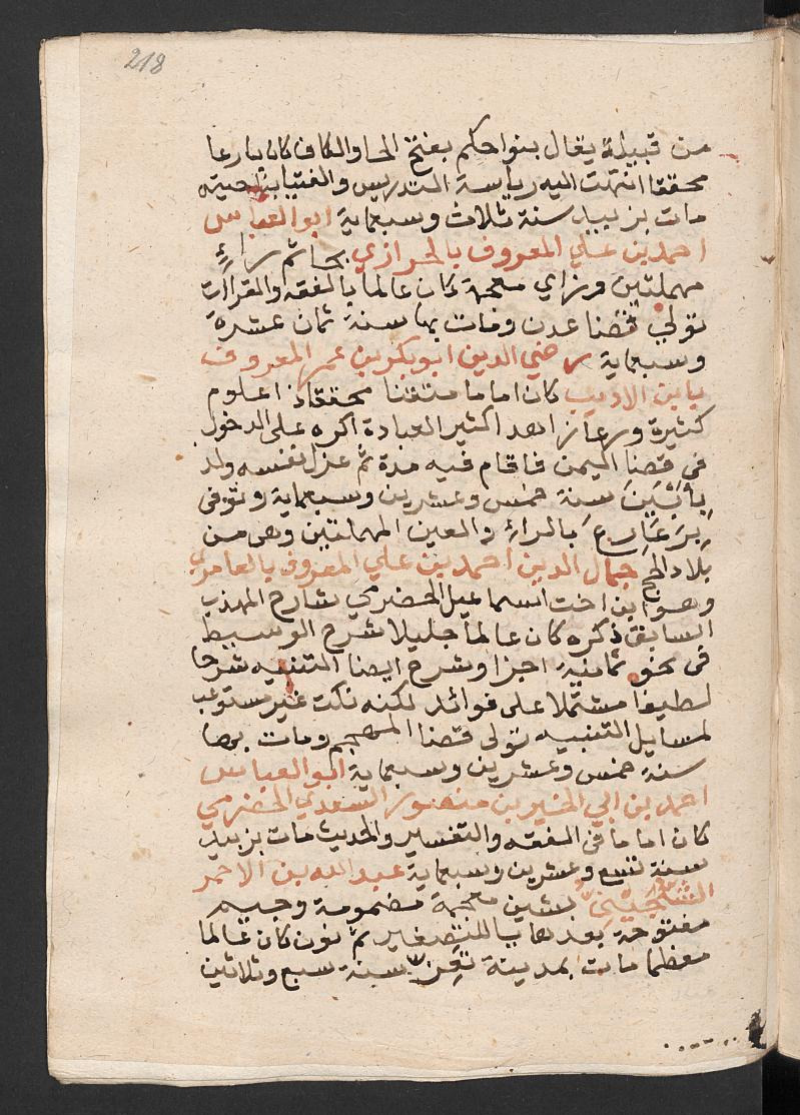 218
من قبيلة يقال بنوا حكم بفتح الحا والكاف كان بارعا
محققا انتهت اليه رياسة التدريس والفتيا بناحيته
مات بزبيد سنة ثلاث وسبعماية ابو العباس
احمد بن علي المعروف بالحرازي بحا ثم راءٍ
مهملتين وزاي معجمة كان عالما بالفقه والقراات
تولى قضا عدن ومات بها سنة ثمان عشرة
وسبعماية رضي الدين ابو بكر بن عمر المعروف
بابن الاديب كان اماما متقنا محققا ذا علوم
كثيرة ورعا زاهدا كثير العبادة اكره على الدخول
في قضا اليمن فاقام فيه مدة ثم عزل نفسه ولد
بِأَبْيَنَ سنة خمس وعشرين وسبعماية وتوفى
بِرَعَارِعَ بالراء والعين المهملتين وهى من
بلاد لحج جمال الدين احمد بن علي المعروف بالعامري
وهو ابن اخت اسماعيل الحضرمي شارح المهذب
السابق ذكره كان عالما جليلا شرح الوسيط
في نحو ثمانية اجزا وشرح ايضا التنبيه شرحا
لطيفا مشتملا على فوائد لكنه نكت غير مستوعب
لمسايل التنبيه تولى قضا المهجم ومات بها
سنة خمس وعشرين وسبعماية ابو العباس
احمد بن ابي الخير بن منصور السعدي الحضرمي
كان اماما في الفقه والتفسير والحديث مات بزبيد
سنة تسع وعشرين وسبعماية عبد الله بن الاحمر
الشُّجَيْنِي بشين معجمة مضمومة وجيم
مفتوحة بعدها يا للتصغير ثم نون كان عالما
معظما مات بمدينة تعز سنة سبع وثلاثين